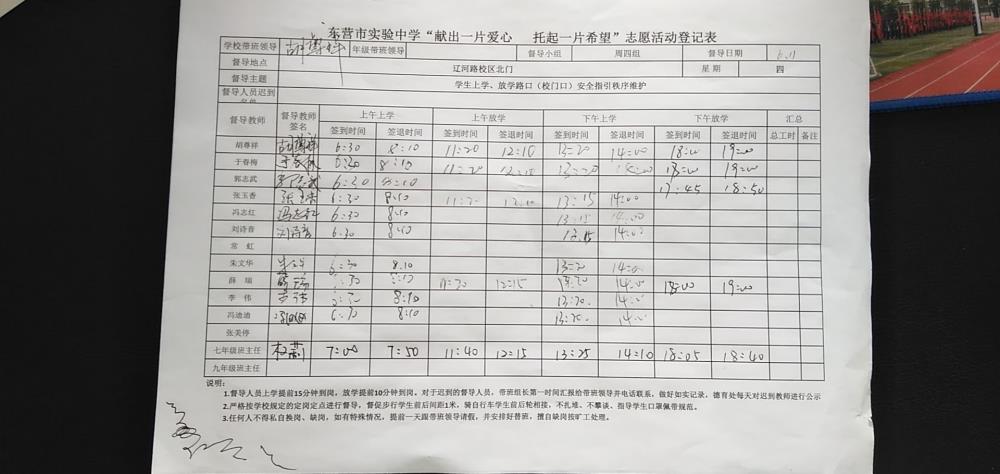 东营市实验中学“献出一片爱心 托起一片希望”志愿活动登记表
学校带班领导 胡尊祥 年级带班领导 督导小组 周四组 督导日期 6.11
督导地点 辽河路校区北门 星期 四
督导主题 学生上学、放学路口（校门口）安全指引秩序维护
督导人员迟到
督导教师 督导教师签名 上午上学 上午放学 下午上学 下午放学 汇总
签到时间 签退时间 签到时间 签退时间 签到时间 签退时间 签到时间 签退时间 总工时 备注
胡尊祥 胡尊祥 6:30 8:10 11:20 12:10 13:20 14:00 18:00 19:00
于春梅 于春梅 6:30 8:10 11:20 12:10 13:20 18:00 19:00
郭志武 郭志武 6:30 8:10 17:45 18:50
张玉香 张玉香 6:30 8:10 13:15 14:00
冯志红 冯志红 6:30 8:10 13:15 14:00
刘诗音 刘诗音 6:30 8:10 13:15 14:00
常 虹
朱文华 8:10 13:20
薛 瑞 11:30 12:15 14:00 18:00 19:00
李 伟 8:10 13:20
冯迪迪 6:30 8:10 13:20
张美停
七年级班主任 7:00 7:50 11:40 12:15 13:25 14:10 18:05 18:40
九年级班主任
说明：
1.督导人员上学提前15分钟到岗，放学提前10分钟到岗。对于迟到的督导人员，带班组长第一时间汇报给带班领导并电话联系，做好如实记录，德育处每天对迟到教师进行公示
2.严格按学校规定的定岗定点进行督导，督促步行学生前后间距1米，骑自行车学生前后轮相接，不扎堆、不攀谈、指导学生口罩佩带规范。
3.任何人不得私自换岗、缺岗，如有特殊情况，提前一天跟带班领导请假，并安排好替班，擅自缺岗按旷工处理。